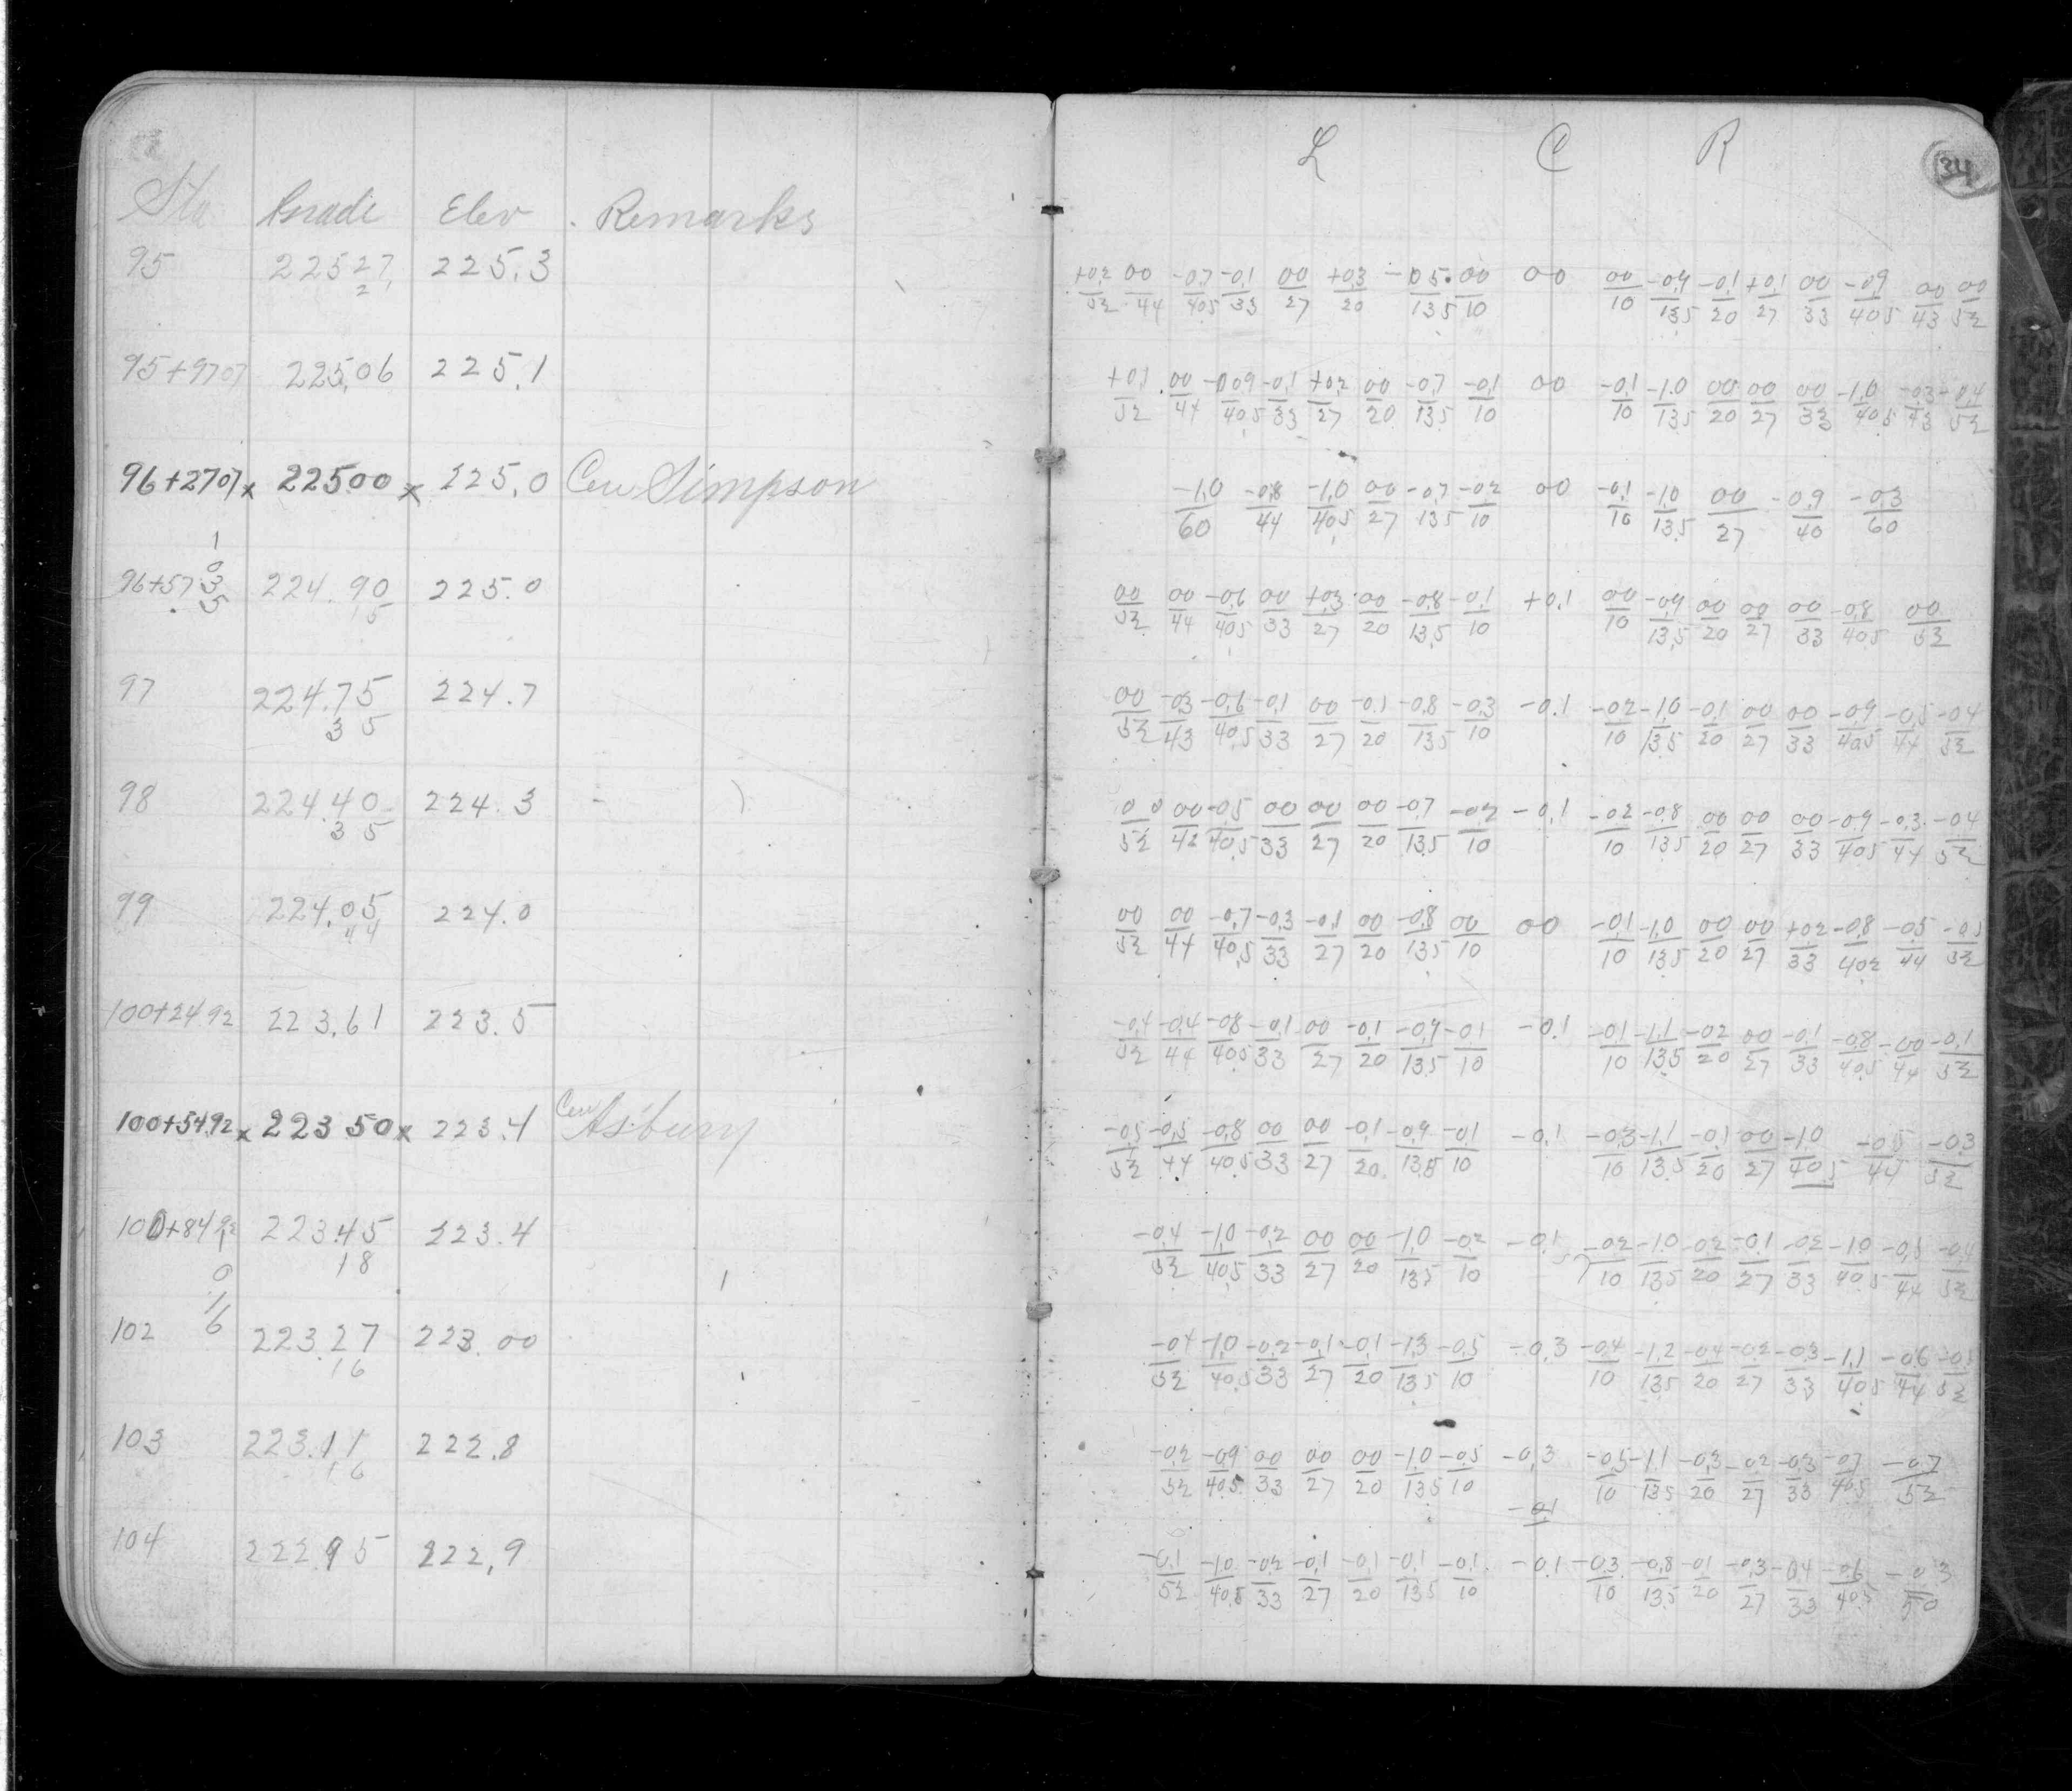 Sta Grade Elev. Remarks
95 225 27 225.3
2
95+9707 225,06 225.1
96+2707 x 22500 x 225,0 Cen Simpson
1
0
96+57 3 224.90 225.0
5 15
97 224.75 224.7
3 5
98 224.40 224.3
3 5
99 224.05 224.0
44
100+2492 223,61 223.5
100+5492 x 223 50 x 223.4 Cen Asbury
100+8492 223.45 223.4
18
0
.1
6
102 223.27 223.00
16
103 223.11 222.8
16
104 222.95 222,9
L C R
34
+0.2/52 00/44 -0.7/40.5 -0.1/33 00/27 +0.3/20 -0.5/13.5 00/10 00 00/10 -0.9/13.5 -0.1/20 +0.1/27 00/33 -0.9/40.5 00/43 00/52
+0.1/52 00/44 -0.9/40.5 -0.1/33 +0.2/27 00/20 -0.7/13.5 -0.1/10 00 -0.1/10 -1.0/13.5 00/20 00/27 00/33 -1.0/40.5 -0.3/43 -0.4/52
-1.0/60 -0.8/44 -1.0/40.5 00/27 -0.7/13.5 -0.2/10 00 -0.1/10 -1.0/13.5 00/27 -0.9/40 -0.3/60
00/52 00/44 -0.6/40.5 00/33 +0.3/27 00/20 -0.8/13.5 -0.1/10 +0.1 00/10 -0.9/13.5 00/20 00/27 00/33 -0.8/40.5 00/52
00/52 -0.3/43 -0.6/40.5 -0.1/33 00/27 -0.1/20 -0.8/13.5 -0.3/10 -0.1 -0.2/10 -1.0/13.5 -0.1/20 00/27 00/33 -0.9/40.5 -0.5/44 -0.4/52
00/52 00/42 -0.5/40.5 00/33 00/27 00/20 -0.7/13.5 -0.2/10 -0.1 -0.2/10 -0.8/13.5 00/20 00/27 00/33 -0.9/40.5 -0.3/44 -0.4/52
00/52 00/44 -0.7/40.5 -0.3/33 -0.1/27 00/20 -0.8/13.5 00/10 00 -0.1/10 -1.0/13.5 00/20 00/27 +0.2/33 -0.8/402 -0.5/44 -0.5/52
-0.4/52 -0.4/44 -0.8/40.5 -0.1/33 00/27 -0.1/20 -0.9/13.5 -0.1/10 -0.1 -0.1/10 -1.1/13.5 -0.2/20 00/27 -0.1/33 -0.8/40.5 -00/44 -0.1/52
-0.5/52 -0.5/44 -0.8/40.5 00/33 00/27 -0.1/20 -0.9/13.5 -0.1/10 -0.1 -0.3/10 -1.1/13.5 -0.1/20 00/27 -1.0/40.5 -0.5/44 -0.3/52
-0.4/52 -1.0/40.5 -0.2/33 00/27 00/20 -1.0/13.5 -0.2/10 -0.1 -0.2/10 -1.0/13.5 -0.2/20 -0.1/27 -0.2/33 -1.0/40.5 -0.5/44 -0.4/52
-0.4/52 -1.0/40.5 -0.2/33 -0.1/27 -0.1/20 -1.3/13.5 -0.5/10 -0.3 -0.4/10 -1.2/13.5 -0.4/20 -0.2/27 -0.3/33 -1.1/40.5 -0.6/44 -0.5/52
-0.2/52 -0.9/40.5 00/33 00/27 00/20 -1.0/13.5 -0.5/10 -0.3 -0.5/10 -1.1/13.5 -0.3/20 -0.2/27 -0.3/33 -0.7/40.5 -0.7/52
-0.1
-0.1/52 -1.0/40.5 -0.2/33 -0.1/27 -0.1/20 -0.1/13.5 -0.1/10 -0.1 -0.3/10 -0.8/13.5 -0.1/20 -0.3/27 -0.4/33 -0.6/40.5 -0.3/50